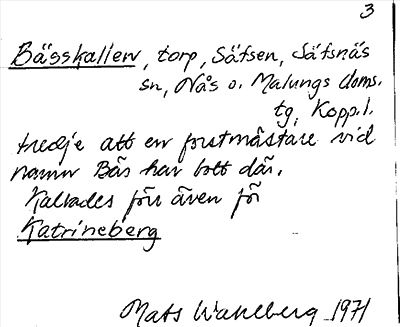 3
Bässkallen, torp, Säfsen, Säfsnäs
sn, Nås o. Malungs doms.
tg, Kopp.l.
tredje att en forstmästare vid
namn Bäs har bott där.
Kallades förr även för
Katrineberg
Mats Wahlberg 1971